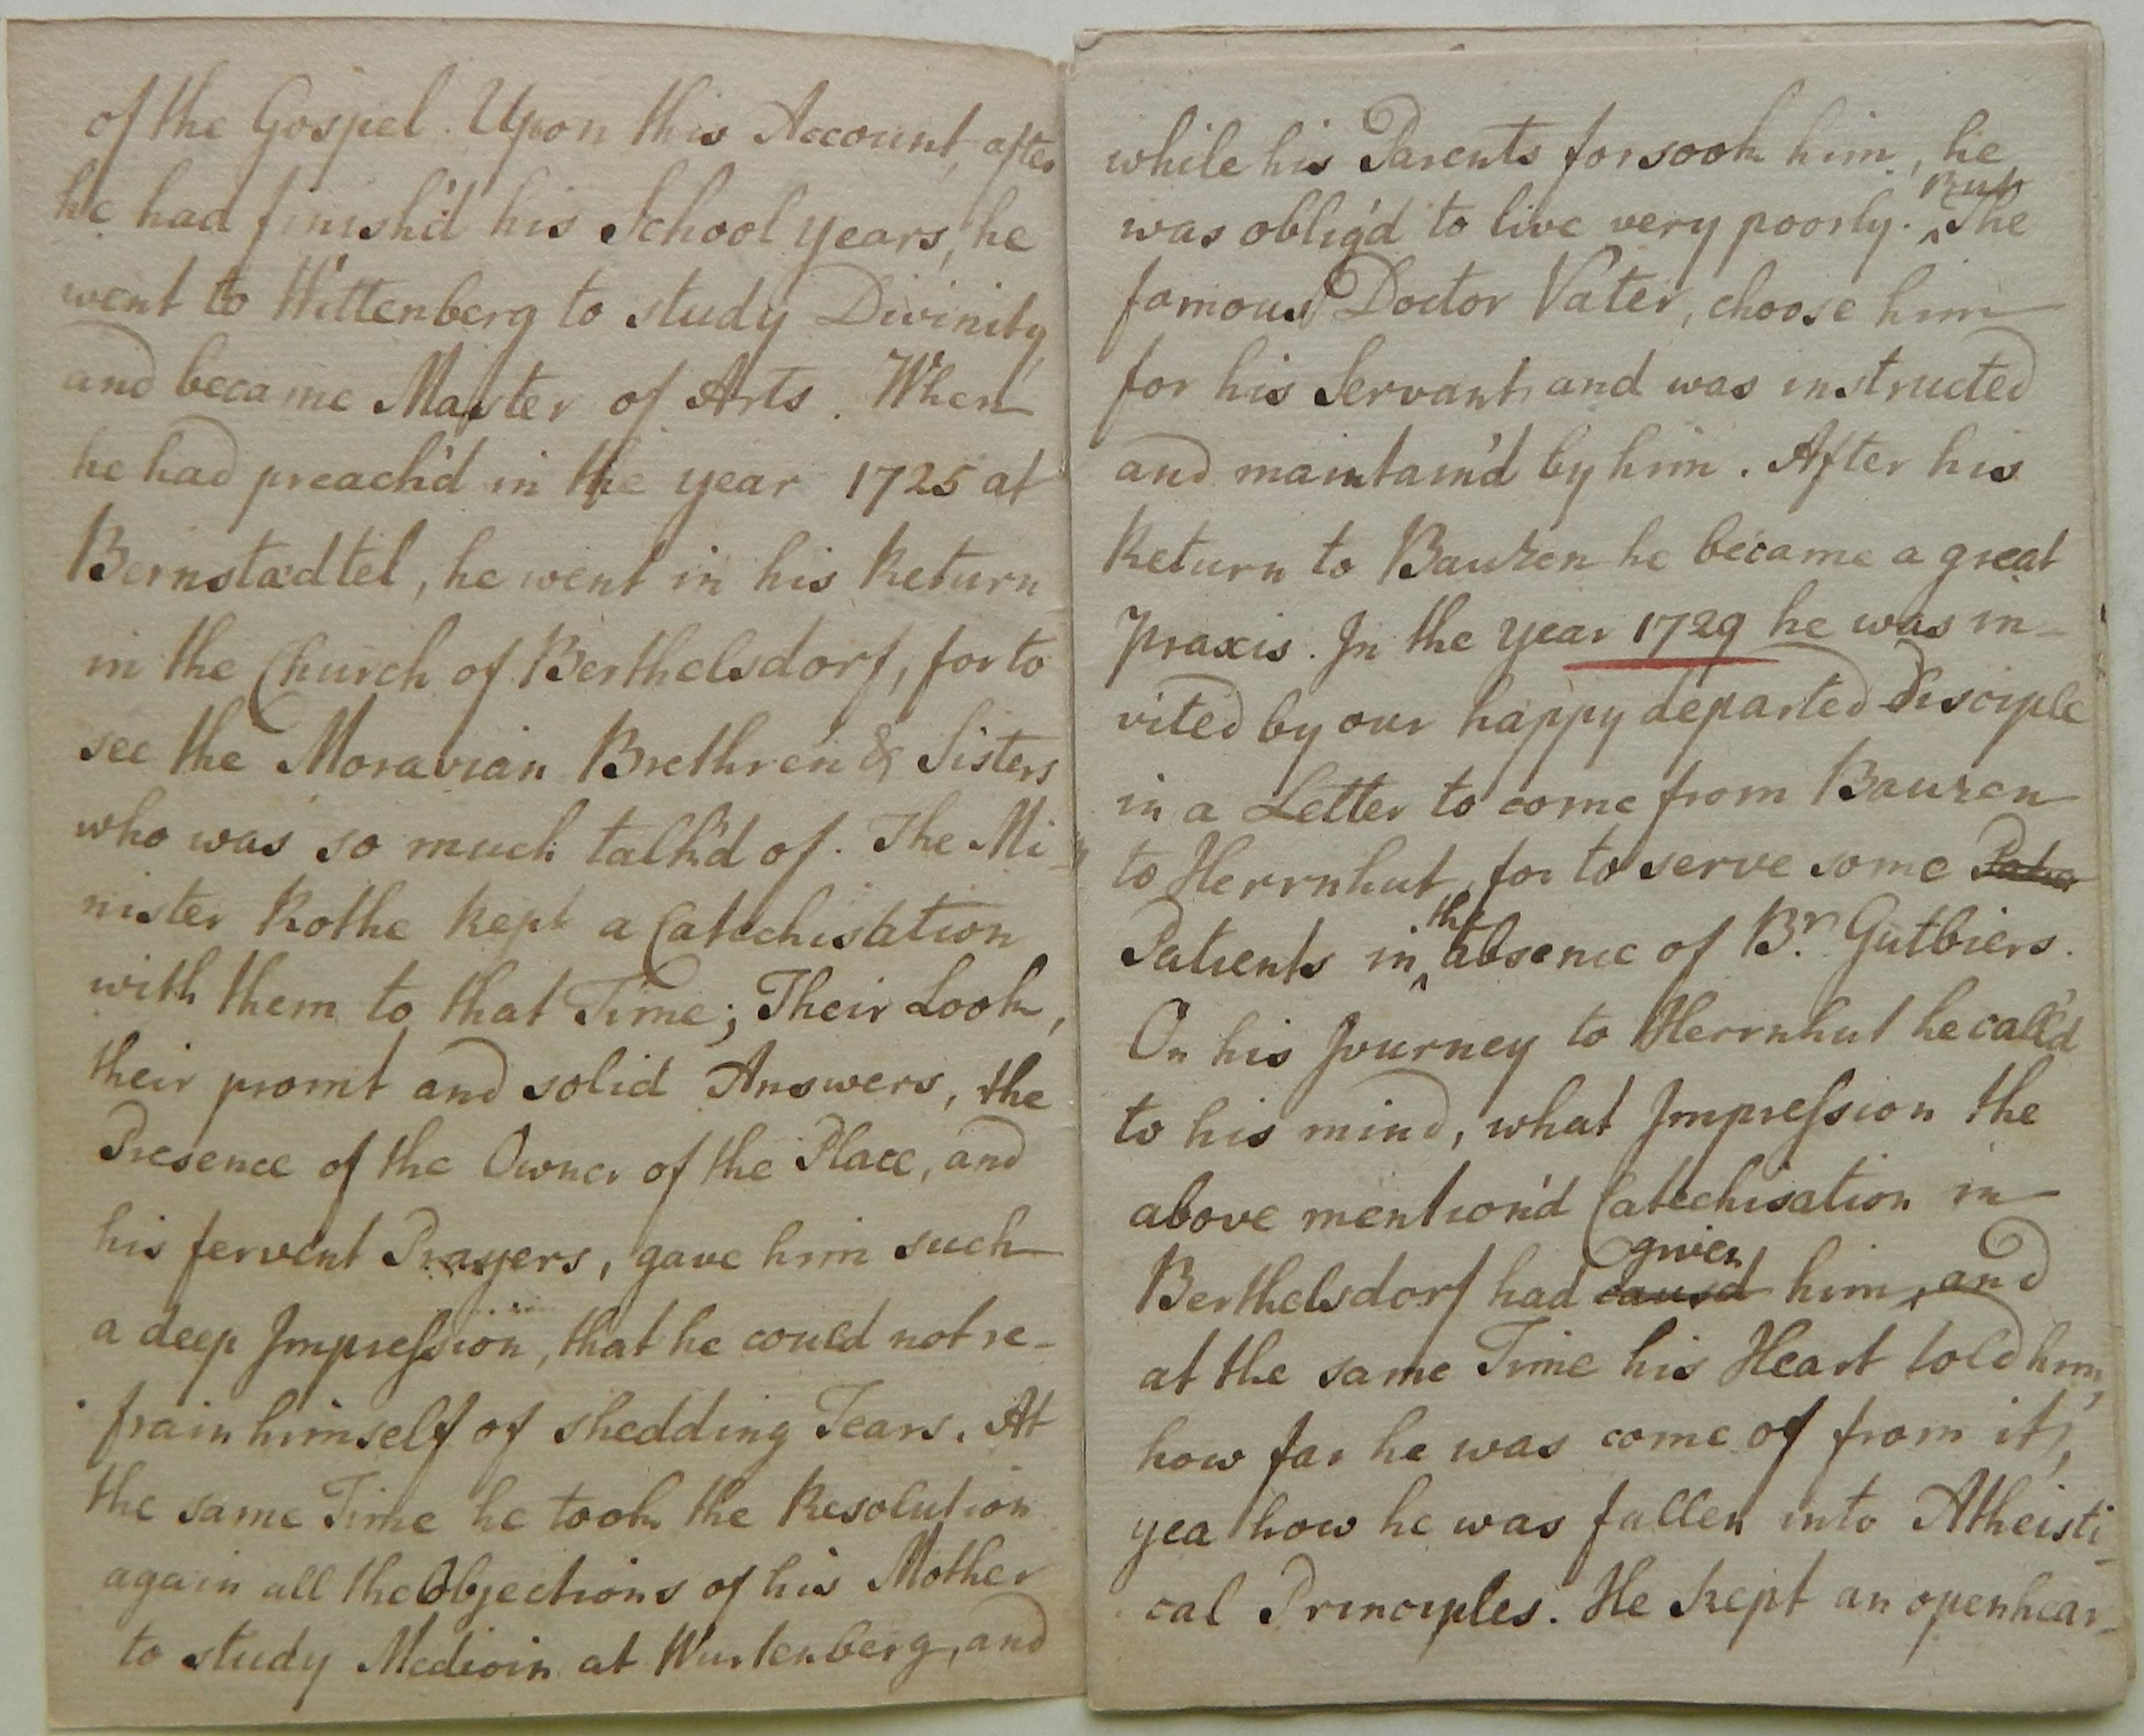 of the Gospel. Upon this Account, after
he had finish'd his School years, he
went to Wittenberg to study Divinity,
and became Master of Arts. When
he had preach'd in the year 1725 at
Bernstædtel, he went in his Return
in the Church of Berthelsdorf, for to
see the Moravian Brethren & Sisters
who was so much talk'd of. The Mi-
nister Rothe kept a Catechisation
with them to that Time; Their Look,
their promt and solid Answers, the
Presence of the Owner of the Place, and
his fervent Prayers, gave him such
a deep Impression, that he could not re-
frain himself of shedding Tears. At
the same Time he took the Resolution
again all the Objections of his Mother
to study Medicin at Wurtenberg, and
while his Parents forsook him, he
was oblig'd to live very poorly. But The
famous Doctor Vater, choose him
for his Servant, and was instructed
and maintain'd by him. After his
Return to Bauzen he became a great
praxis. In the year 1729 he was in-
vited by our happy departed Disciple
in a Letter to come from Bauzen
to Herrnhut, for to serve some
Patients in the absence of Br. Gutbiers.
On his Journey to Herrnhut he call'd
to his mind, what Impression the
above mention'd Catechisation in
Berthelsdorf had caus'd given him, and
at the same Time his Heart told him,
how far he was come of from it,
yea how he was fallen into Atheisti-
cal Principles. He kept an openhear-